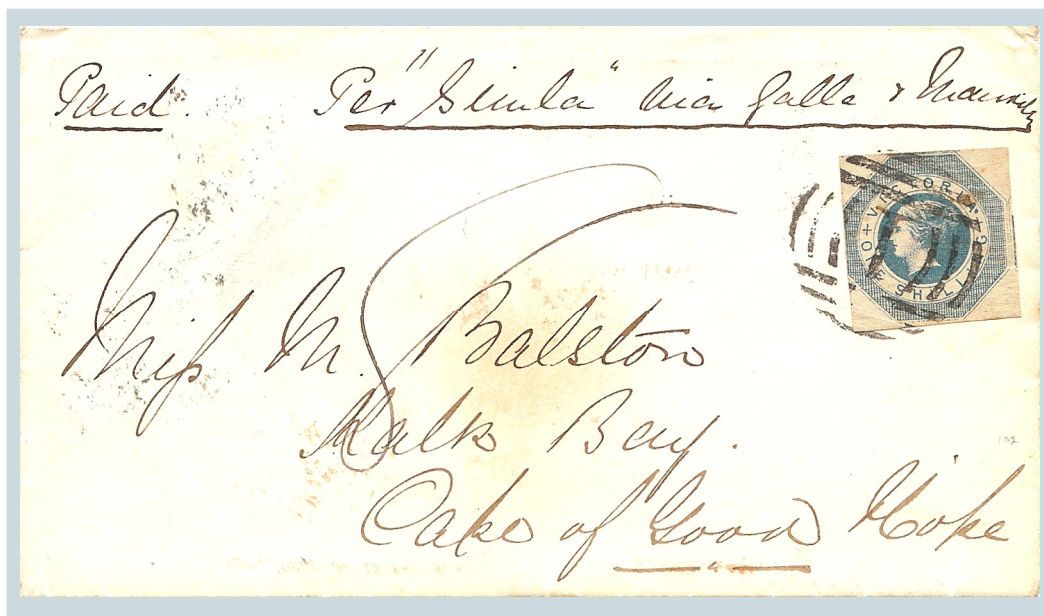 Paid. Per "Simla" via Galle & Mauritius
VICTORIA
ONE SHILLING
5
Miss M. Balston
Kalk Bay.
Cape of Good Hope
102